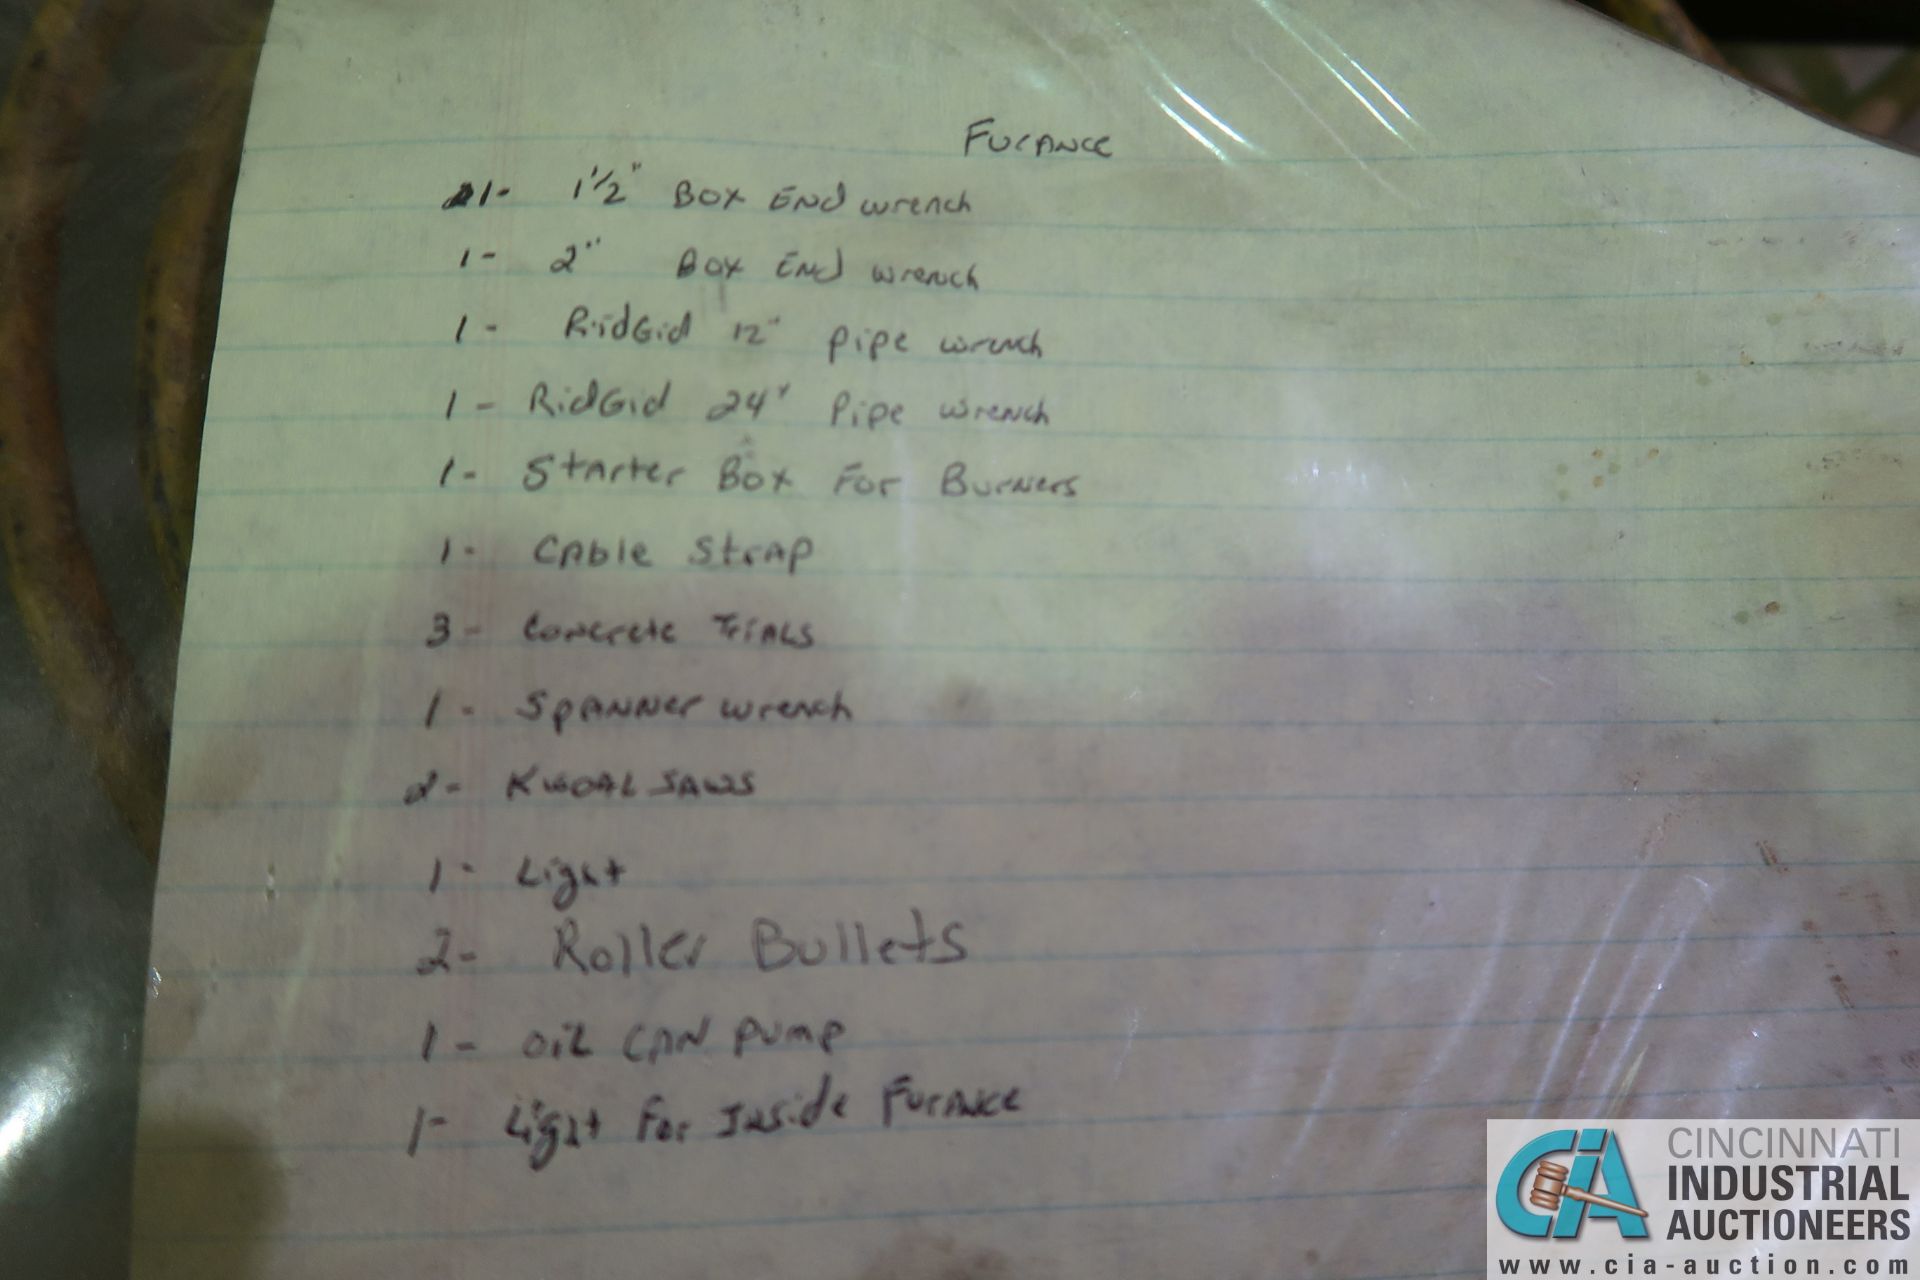 Furance
1- 1 1/2" Box End wrench
1- 2" Box End wrench
1- RidGid 12" pipe wrench
1- RidGid 24" Pipe wrench
1- Starter Box For Burners
1- Cable Strap
3- Concrete Trials
1- Spanner wrench
2- Kwoal saws
1- Light
2- Roller Bullets
1- oil can pump
1- Light For Inside Furance
CIA
CINCINNATI
INDUSTRIAL
AUCTIONEERS
www.cia-auction.com